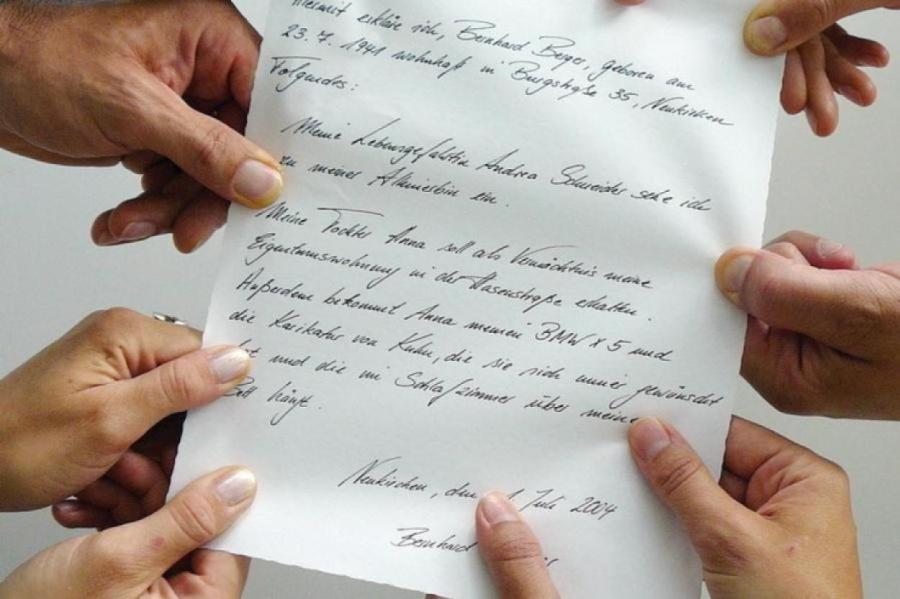 Hiermit erkläre ich, Bernhard Berger, geboren am
23.7.1941 wohnhaft in Burgstraße 35, Neukirchen
Folgendes:
Meine Lebensgefährtin Andrea Schneider setze ich
zu meiner Alleinerbin ein.
Meine Tochter Anna soll als Vermächtnis meine
Eigentumswohnung in der Hasenstraße erhalten.
Außerdem bekommt Anna meinen BMW X5 und
die Karikatur von Kuhn, die sie sich immer gewünscht
und die im Schlafzimmer über meinem
Bett hängt.
Neukirchen, den 1. Juli 2004
Bernhard